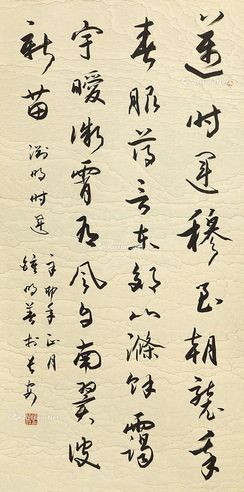 邁时運穆良朝襲我
春服薄言东郊山滌餘靄
宇曖微霄有风自南翼彼
新苗 渊明时運
辛卯年正月
鐘明善於長安